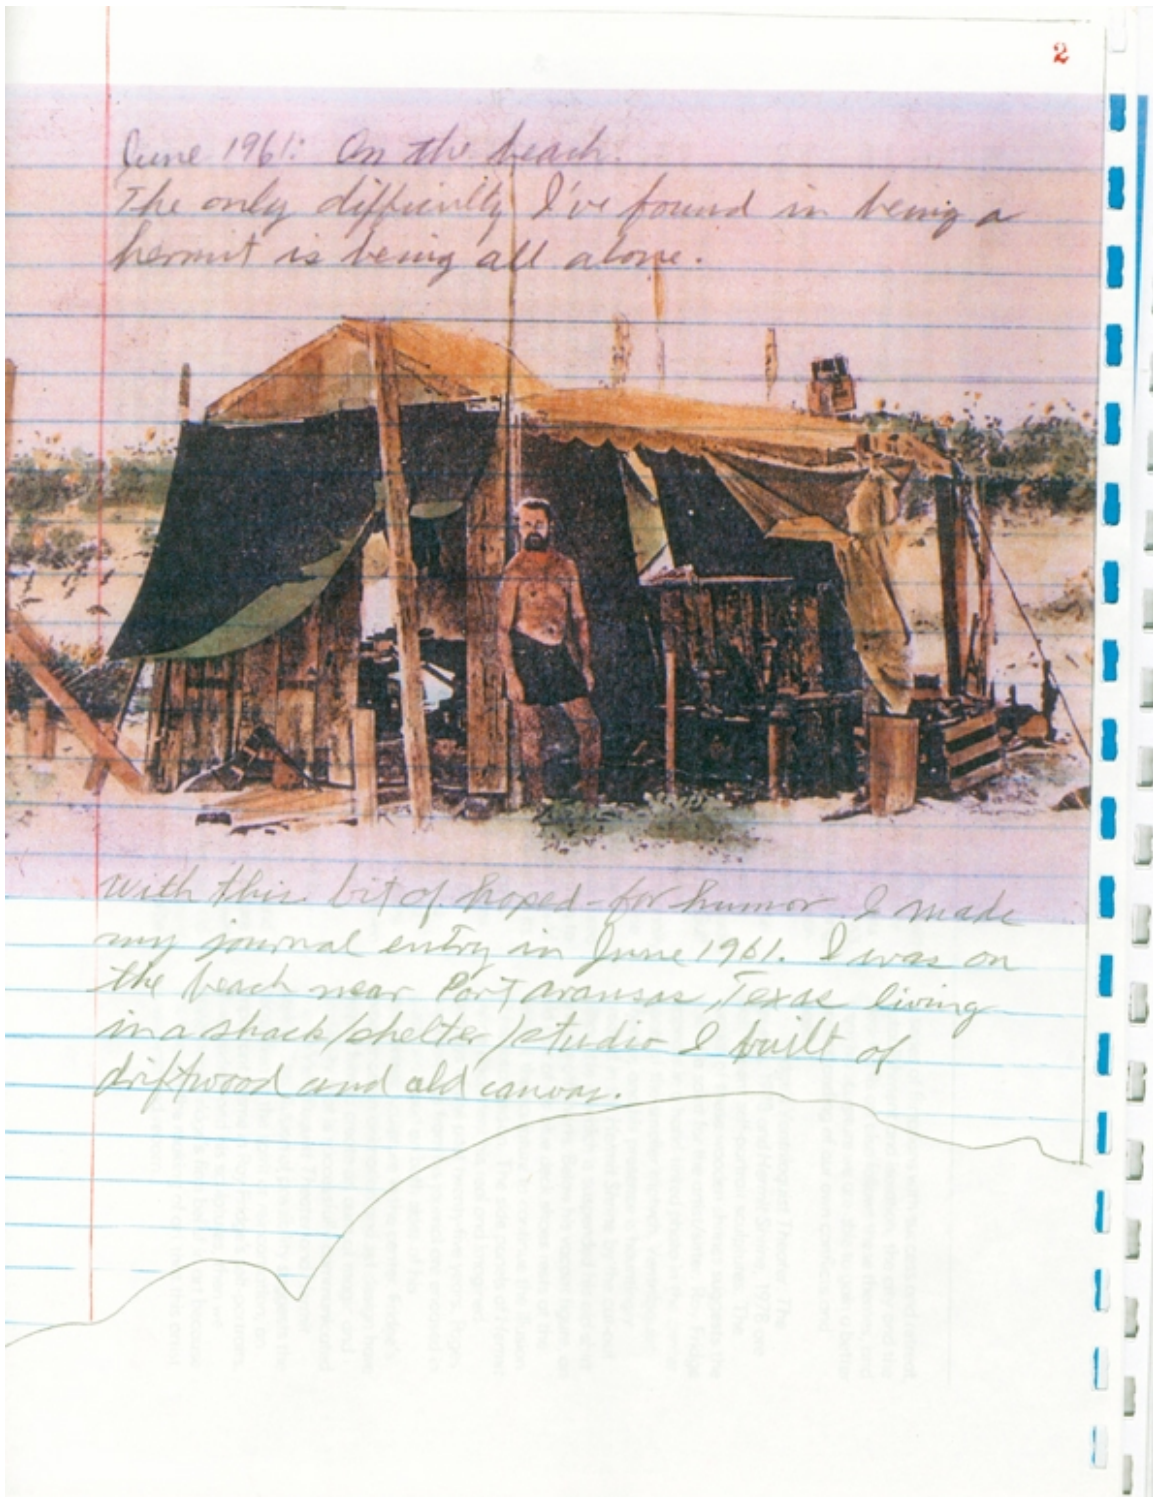 2
June 1961: On the beach.
The only difficulty I've found in being a
hermit is being all alone.
with this bit of hoped-for humor I made
my journal entry in June 1961. I was on
the beach near Port Aransas, Texas living
in a shack/shelter/studio I built of
driftwood and old canvas.